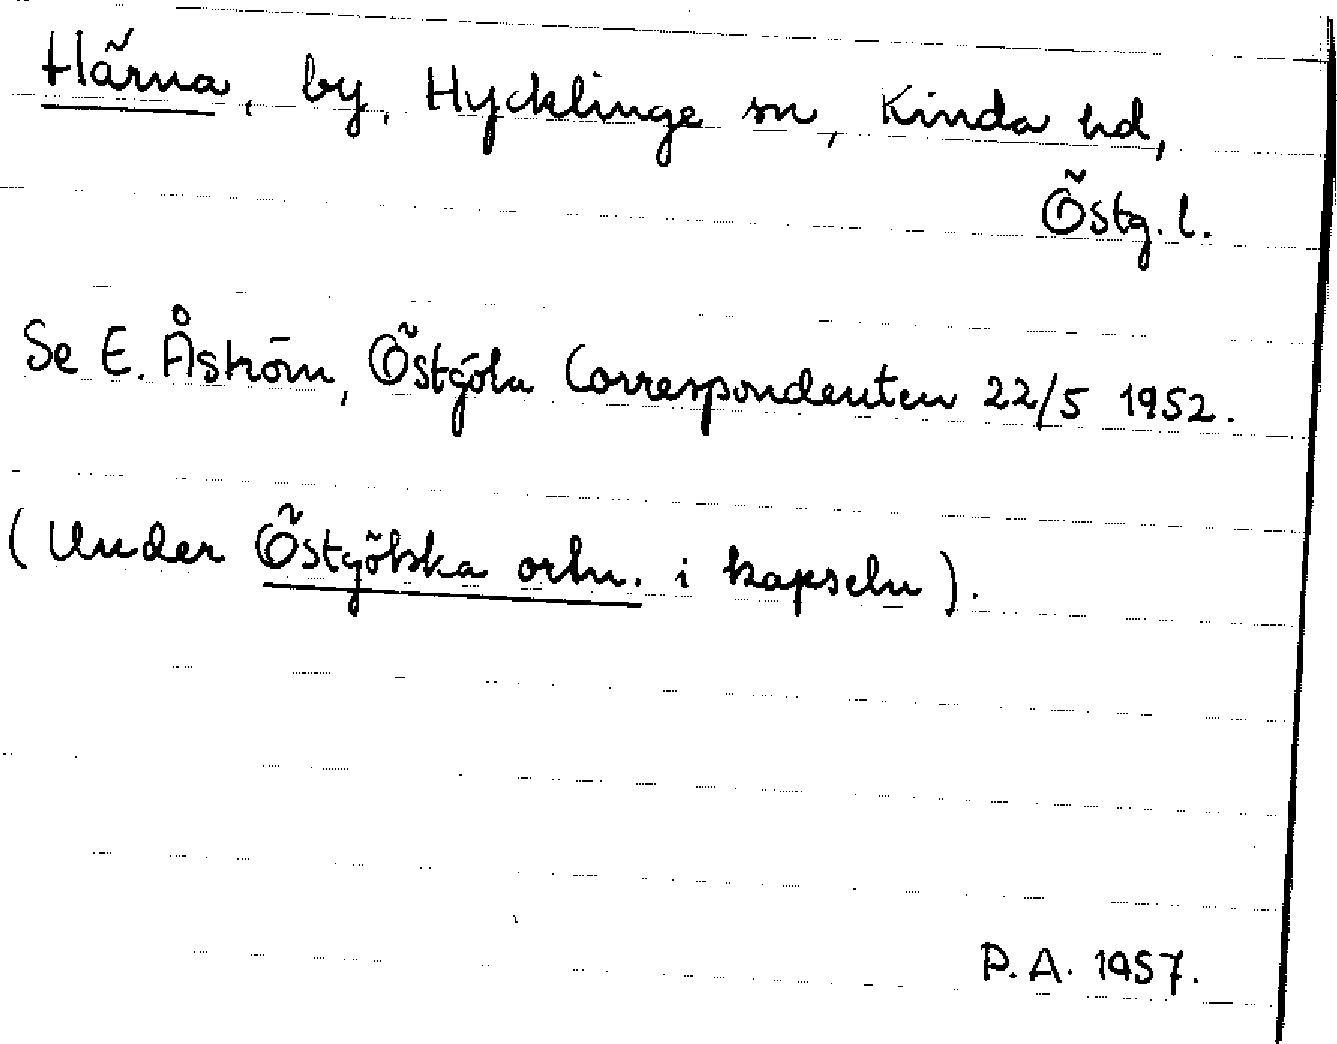 Härna, by, Hycklinge sn, Kinda hd,
Östg. l.
Se E. Åström, Östgöta Correspondenten 22/5 1952.
(Under Östgötska ortn. i kapseln).
P. A. 1957.